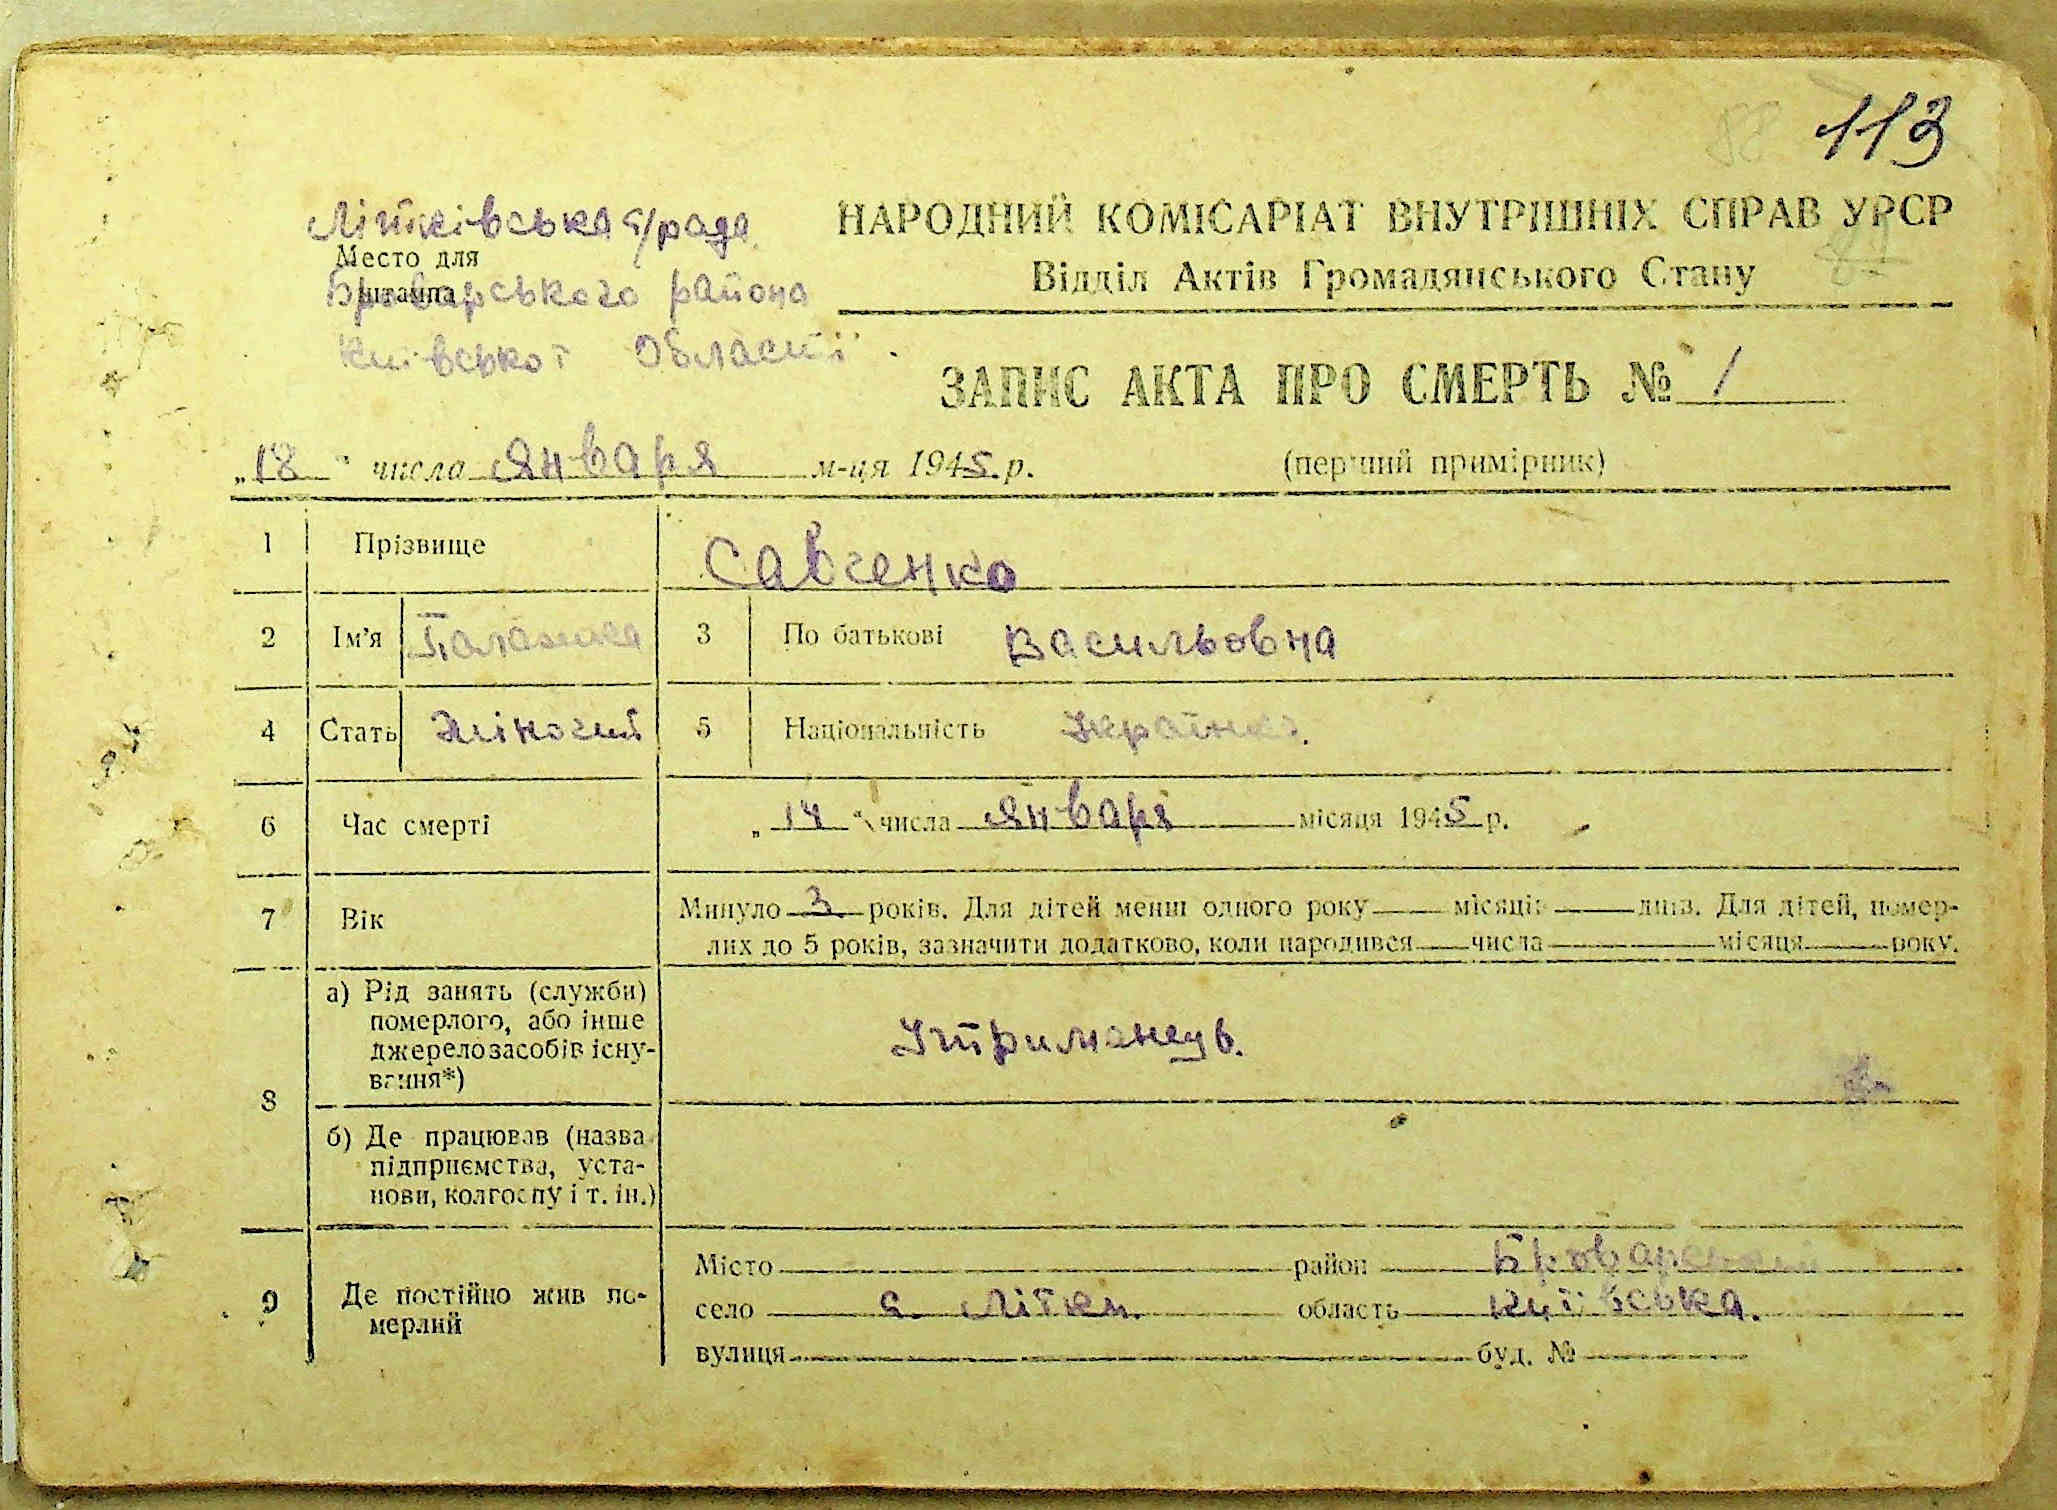 113
Літківська с/рада
Место для
штампа
Броварського района
Київської Області.
НАРОДНИЙ КОМІСАРІАТ ВНУТРІШНІХ СПРАВ УРСР
Відділ Актів Громадянського Стану
ЗАПИС АКТА ПРО СМЕРТЬ № 1
„18" числа января м-ця 1945 р. (перший примірник)
1 Прізвище Савченко
2 Ім'я Палажка 3 По батькові Васильовна
4 Стать Жіночий 5 Національність Українка.
6 Час смерті „14" числа января місяця 1945 р.
7 Вік Минуло 3 років. Для дітей менш одного року місяців днів. Для дітей, помер-
лих до 5 років, зазначити додатково, коли народився числа місяця року.
8 а) Рід занять (служби)
померлого, або інше
джерело засобів існу-
вання*)
Утриманець.
б) Де працював (назва
підприємства, уста-
нови, колгоспу і т. ін.)
9 Де постійно жив по-
мерлий
Місто район Броварський
село с. Літки. область Київська.
вулиця буд. №